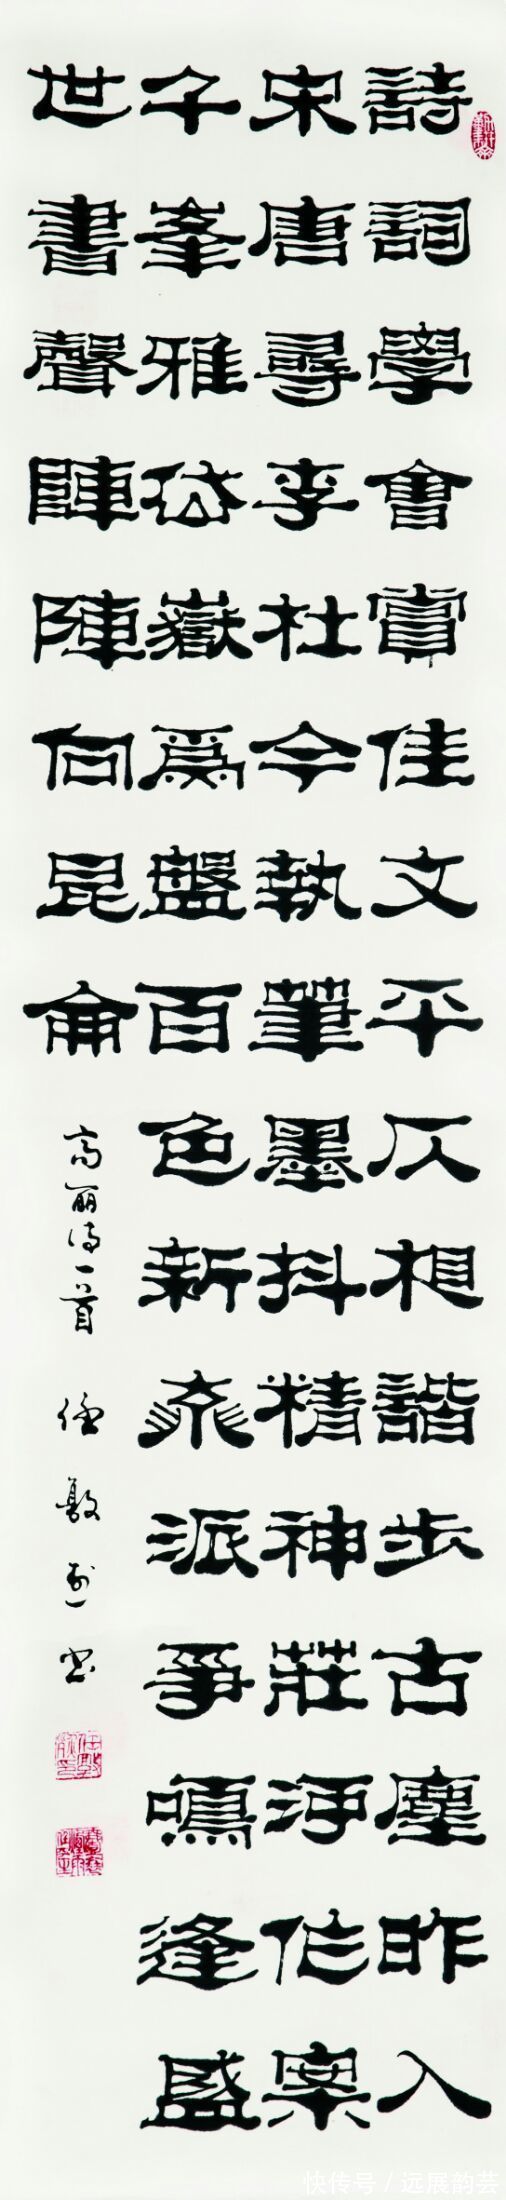 詩詞學會賞佳文平仄相諧步古塵昨入
宋唐尋李杜今執筆墨抖精神莊浮作案
千峯雅岱嶽爲盤百色新流派爭鳴逢盛
世書聲陣陣向昆侖
高丽诗一首
快传号 / 远展韵芸